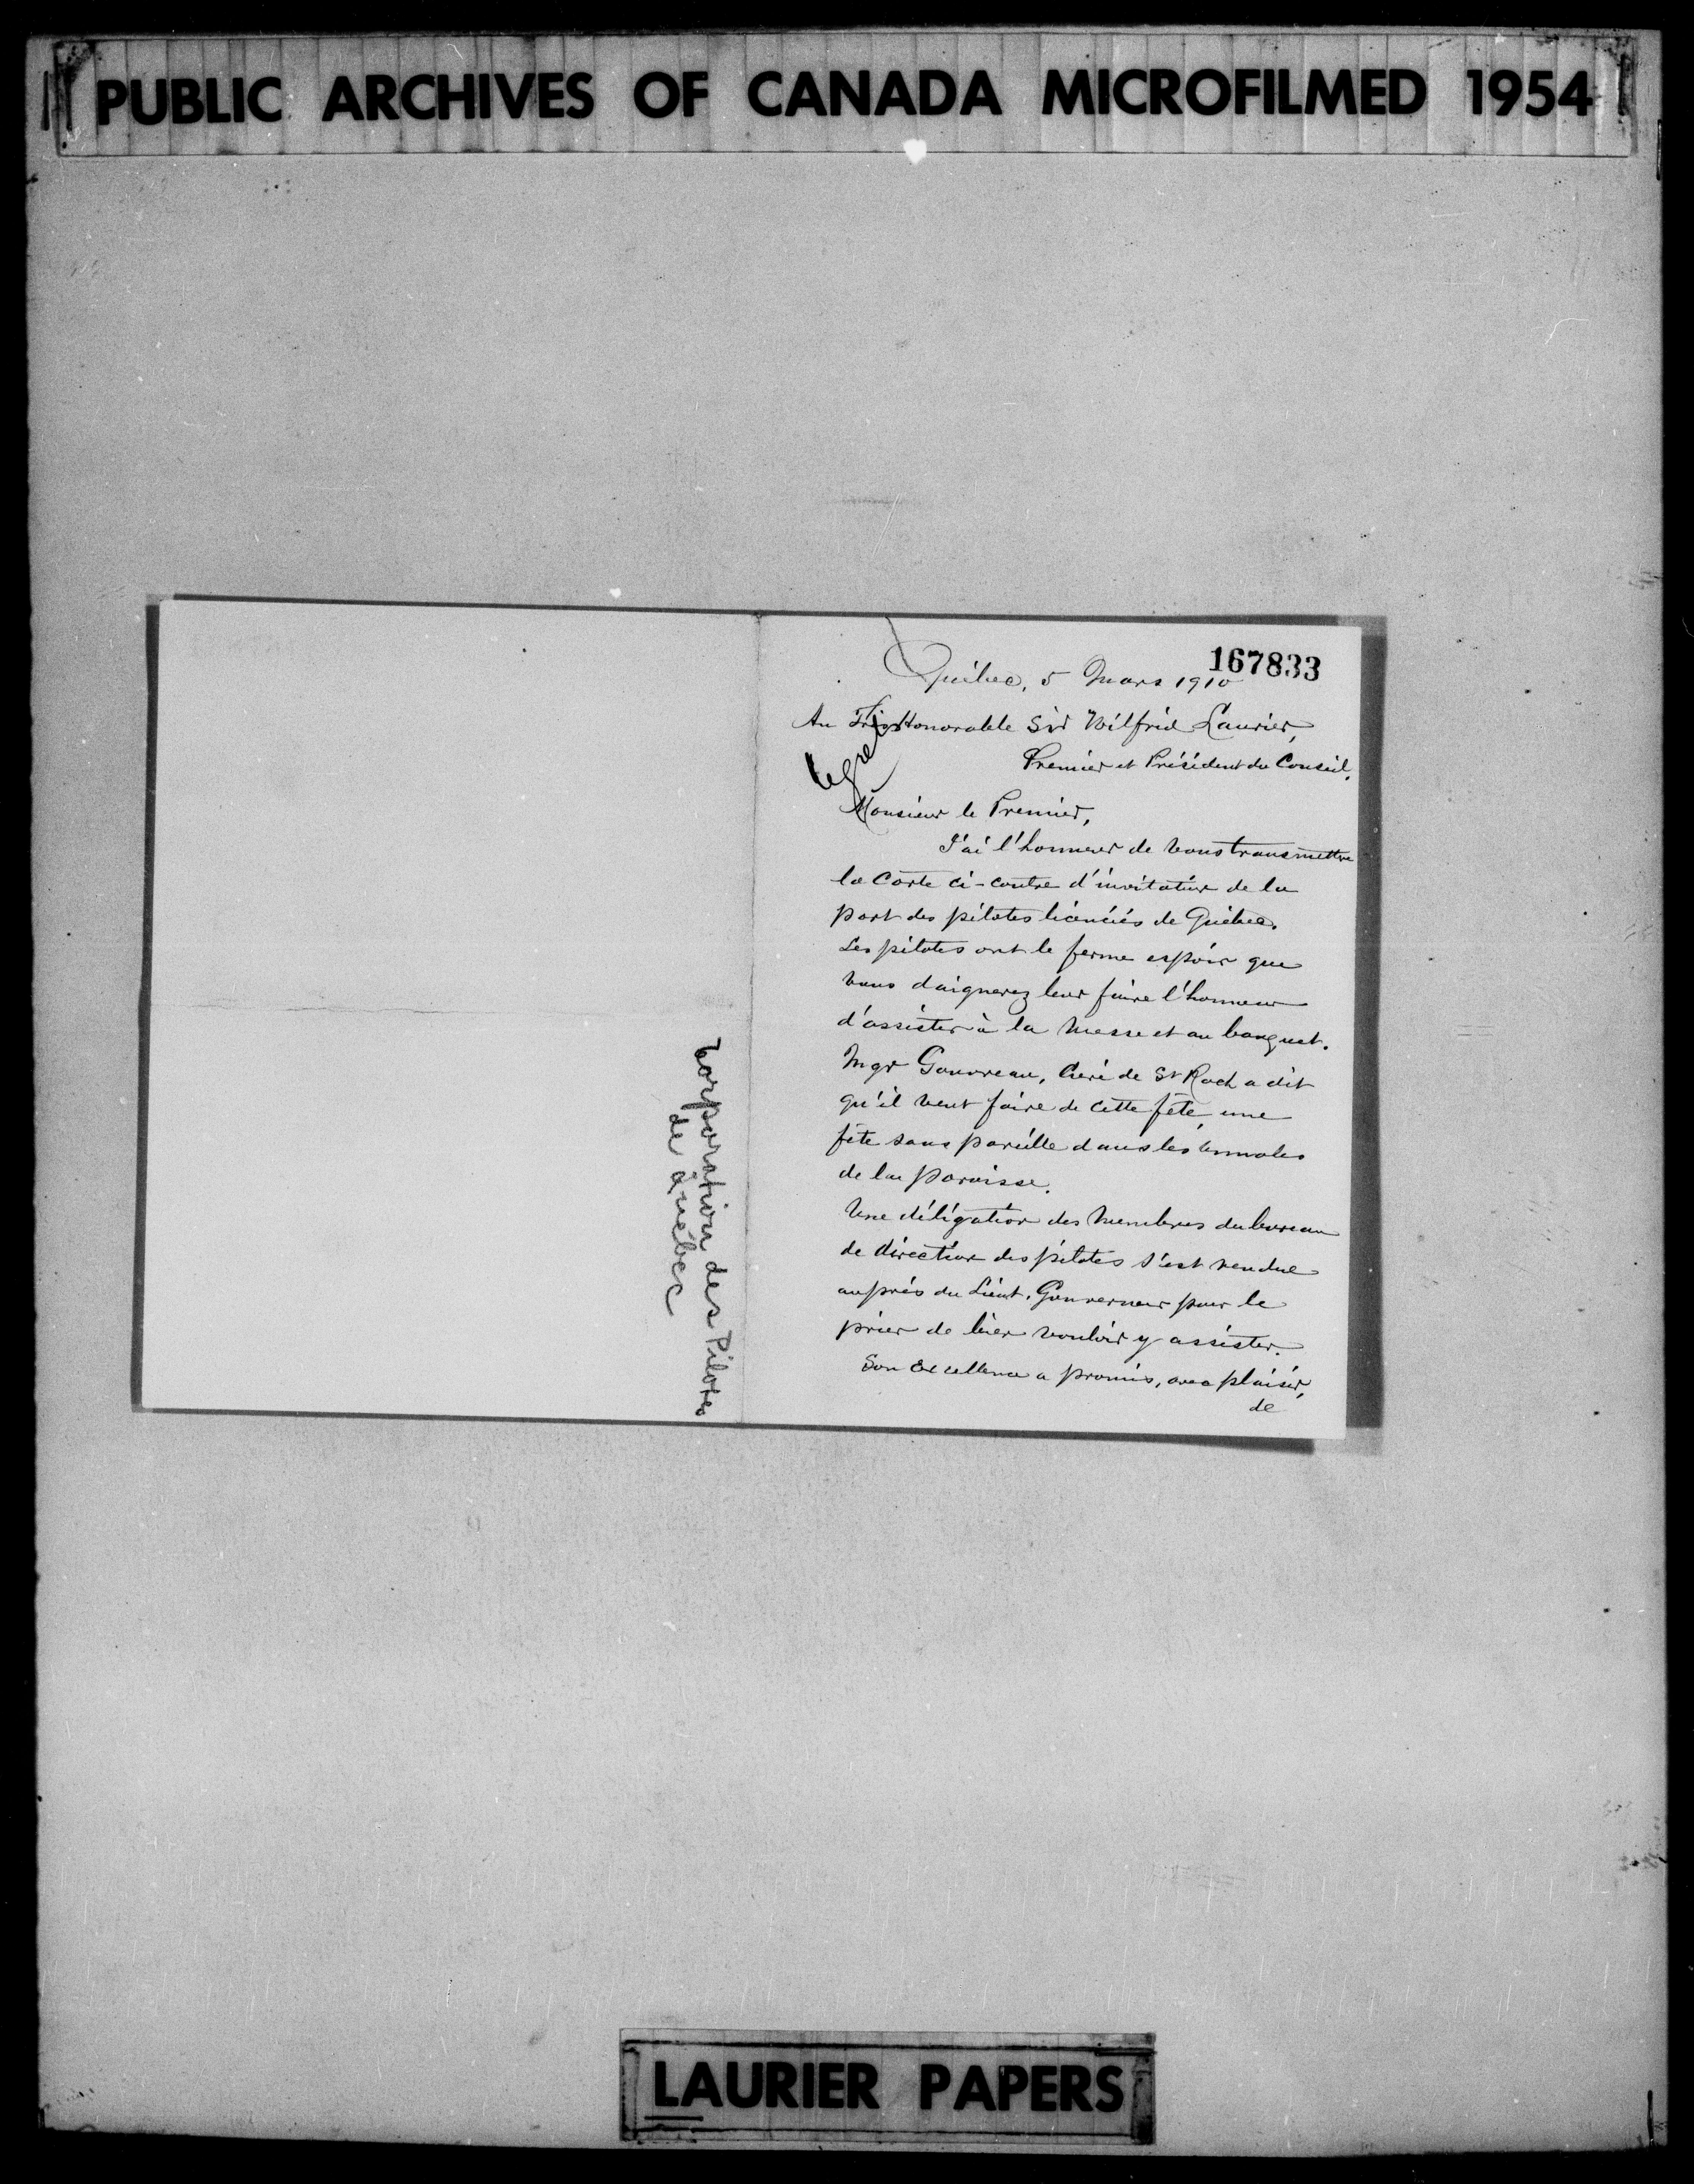 PUBLIC ARCHIVES OF CANADA MICROFILMED 1954
167833
Québec, 5 Mars 1910
Au Très Honorable Sir Wilfrid Laurier,
Premier et Président du Conseil.
Regrets
Monsieur le Premier,
J'ai l'honneur de vous transmettre
la carte ci-contre d'invitation de la
part des pilotes licenciés de Québec.
Les pilotes ont le ferme espoir que
vous daignerez leur faire l'honneur
d'assister à la messe et au banquet.
Mgr Gauvreau, Curé de St Roch a dit
qu'il veut faire de cette fête, une
fête sans pareille dans les annales
de la paroisse.
Une délégation des membres du bureau
de direction des pilotes s'est rendue
auprès du Lieut. Gouverneur pour le
prier de bien vouloir y assister.
Son Excellence a promis, avec plaisir,
de
Corporation des Pilotes
de Québec
LAURIER PAPERS